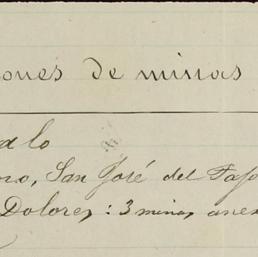 ones de minas
alo
no, San José del Tajo
Dolores: 3 minas anex